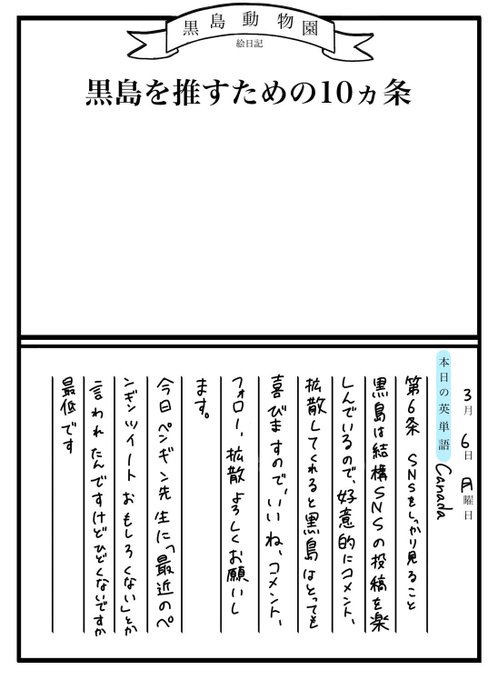 黒島動物園
絵日記
黒島を推すための10ヵ条
3月6日月曜日
本日の英単語 Canada
第6条 SNSをしっかり見ること
黒島は結構SNSの投稿を楽
しんでいるので、好意的にコメント、
拡散してくれると黒島はとっても
喜びますので、いいね、コメント、
フォロー、拡散よろしくお願いし
ます。
今日ペンギン先生に「最近のペ
ンギンツイートおもしろくない」とか
言われたんですけどひどくないですか
最低です